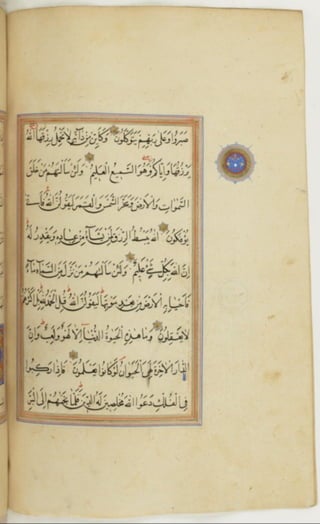 صَبَرُوا وَعَلَىٰ رَبِّهِمْ يَتَوَكَّلُونَ وَكَأَيِّنْ مِنْ دَابَّةٍ لَا تَحْمِلُ رِزْقَهَا اللَّهُ
يَرْزُقُهَا وَإِيَّاكُمْ وَهُوَ السَّمِيعُ الْعَلِيمُ وَلَئِنْ سَأَلْتَهُمْ مَنْ خَلَقَ
السَّمَوَاتِ وَالْأَرْضَ وَسَخَّرَ الشَّمْسَ وَالْقَمَرَ لَيَقُولُنَّ اللَّهُ فَأَنَّىٰ
يُؤْفَكُونَ اللَّهُ يَبْسُطُ الرِّزْقَ لِمَنْ يَشَاءُ مِنْ عِبَادِهِ وَيَقْدِرُ لَهُ
إِنَّ اللَّهَ بِكُلِّ شَيْءٍ عَلِيمٌ وَلَئِنْ سَأَلْتَهُمْ مَنْ نَزَّلَ مِنَ السَّمَاءِ مَاءً
فَأَحْيَا بِهِ الْأَرْضَ مِنْ بَعْدِ مَوْتِهَا لَيَقُولُنَّ اللَّهُ قُلِ الْحَمْدُ لِلَّهِ بَلْ أَكْثَرُهُمْ
لَا يَعْقِلُونَ وَمَا هَذِهِ الْحَيَوةُ الدُّنْيَا إِلَّا لَهْوٌ وَلَعِبٌ وَإِنَّ
الدَّارَ الْآخِرَةَ لَهِيَ الْحَيَوَانُ لَوْ كَانُوا يَعْلَمُونَ فَإِذَا رَكِبُوا
فِي الْفُلْكِ دَعَوُا اللَّهَ مُخْلِصِينَ لَهُ الدِّينَ فَلَمَّا نَجَّاهُمْ إِلَى الْبَرِّ